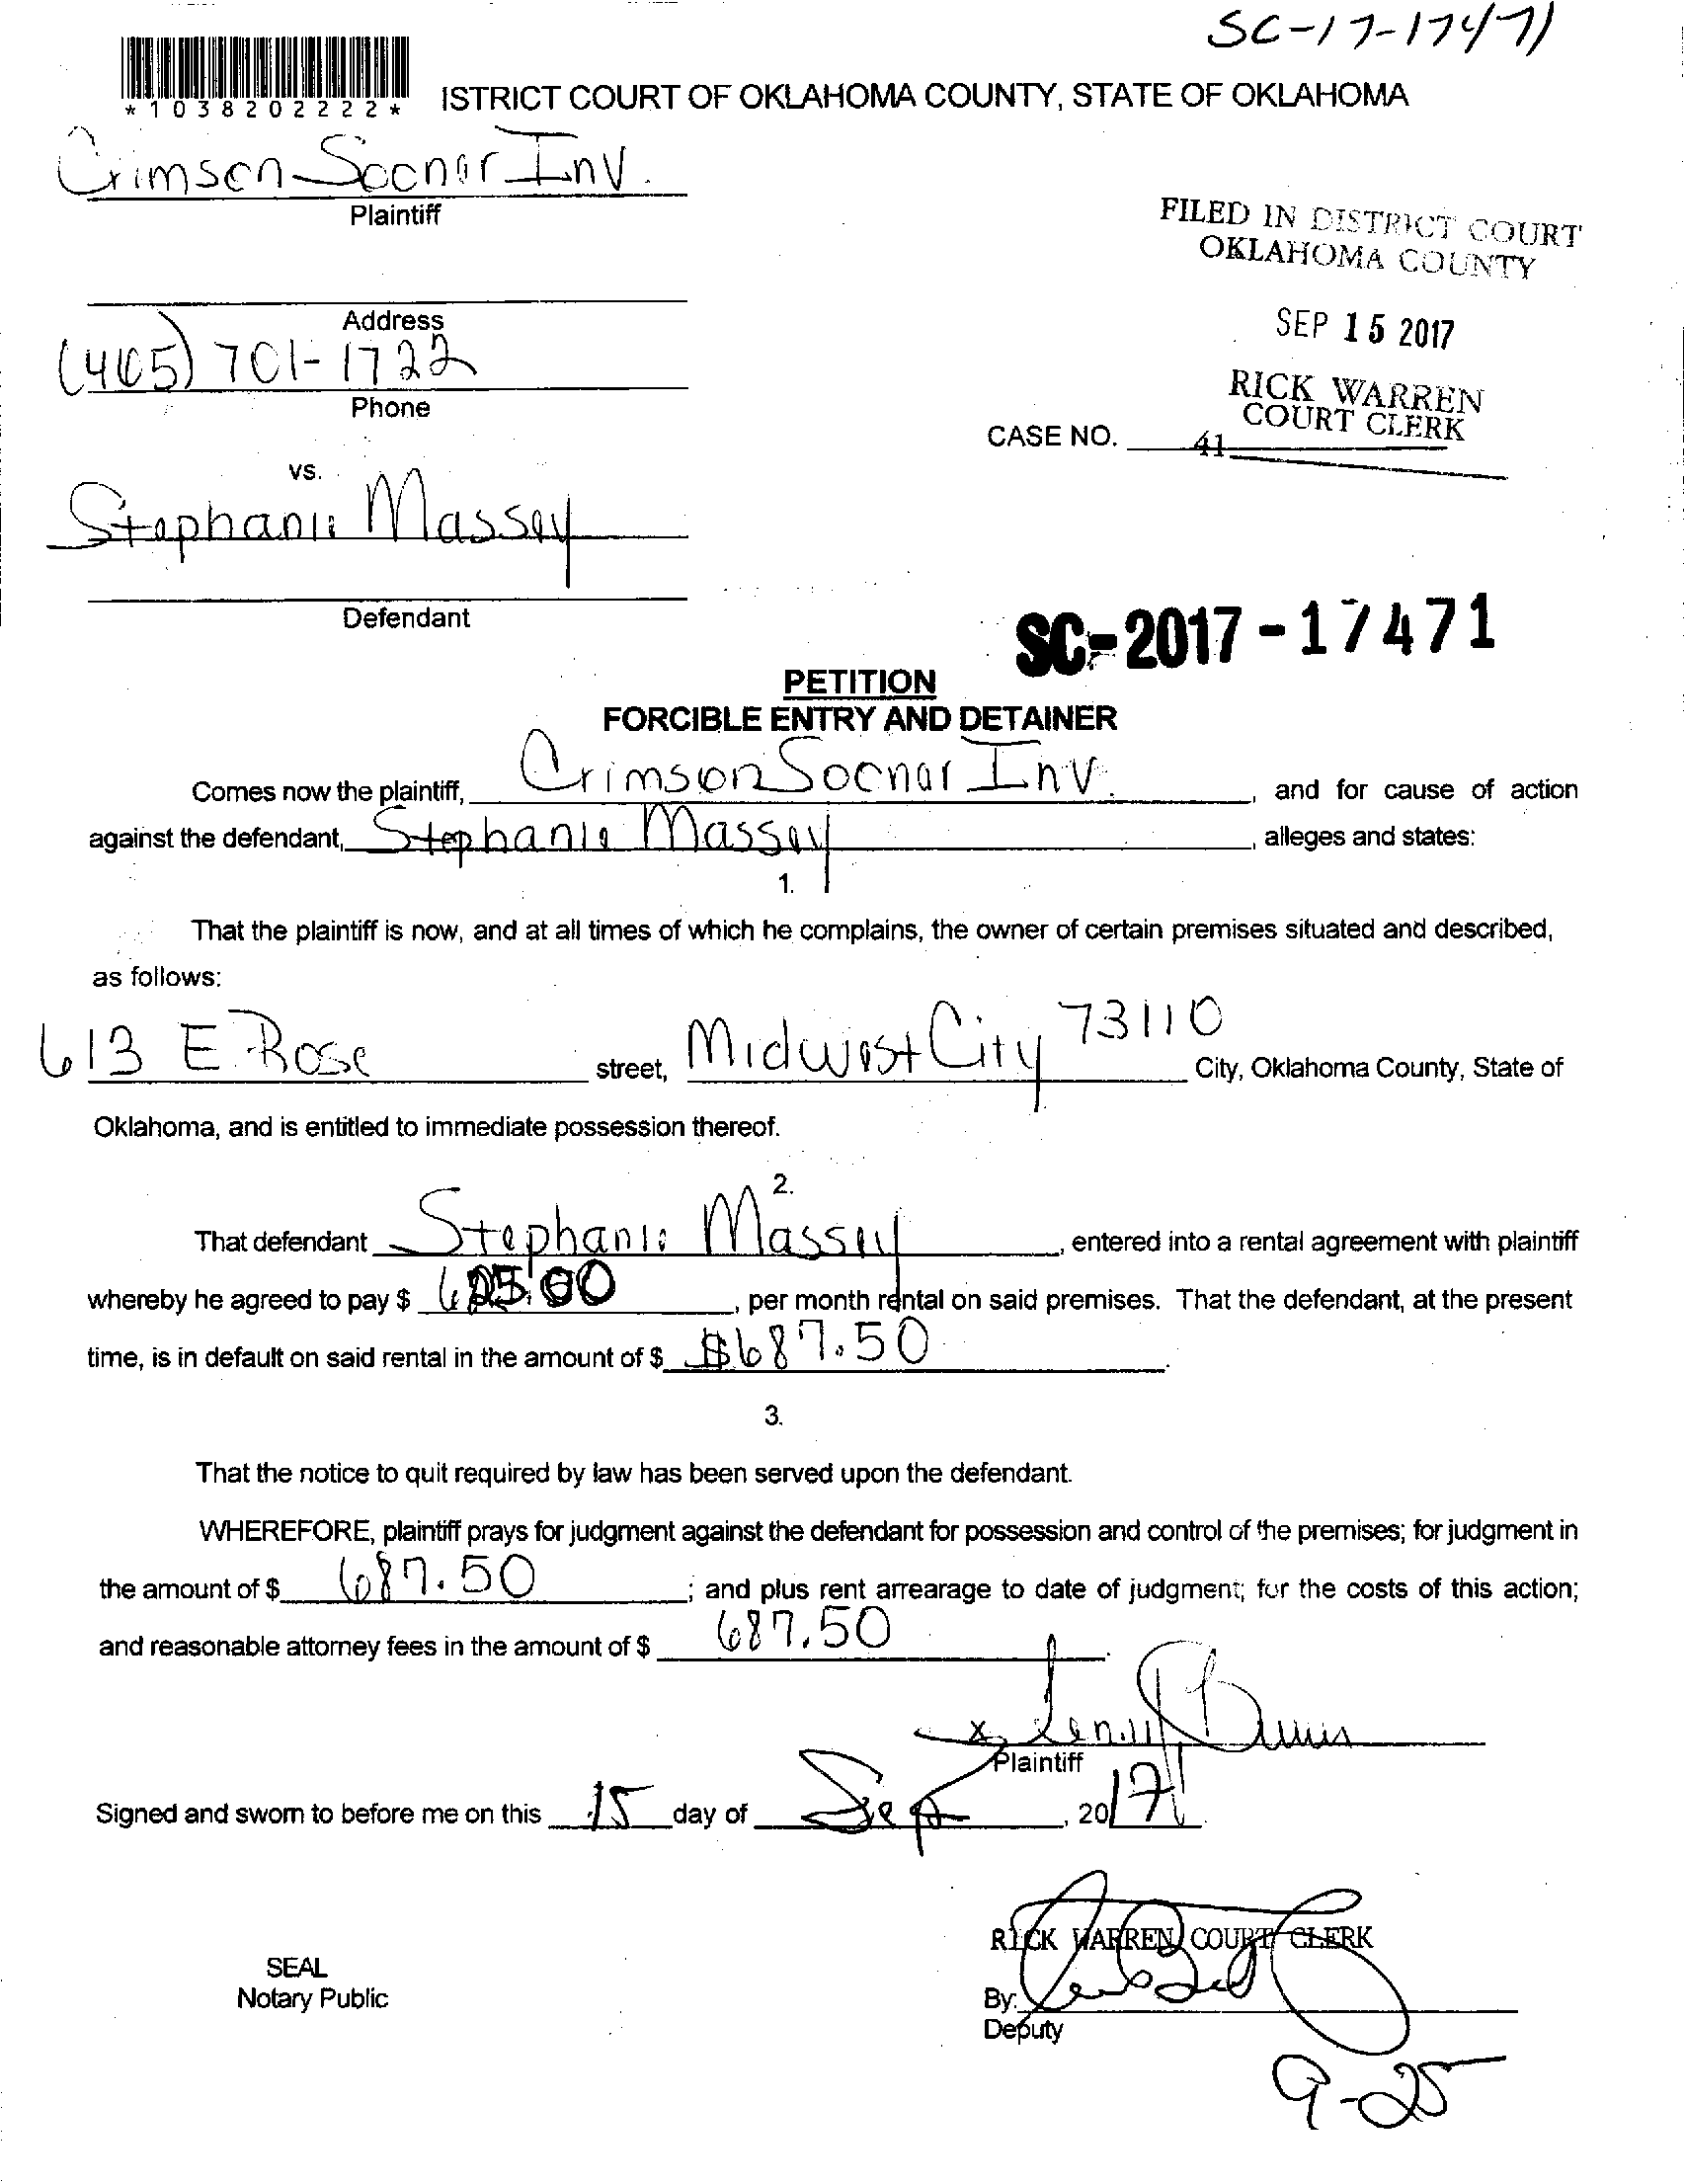 SC-17-17471
*1038202222*
ISTRICT COURT OF OKLAHOMA COUNTY, STATE OF OKLAHOMA
Crimson Sooner Inv.
Plaintiff
FILED IN DISTRICT COURT
OKLAHOMA COUNTY
Address
SEP 15 2017
(405) 701-1722
Phone
RICK WARREN
COURT CLERK
CASE NO.
41
vs.
Stephanie Massey
Defendant
SC-2017-17471
PETITION
FORCIBLE ENTRY AND DETAINER
Comes now the plaintiff, Crimson Sooner Inv. , and for cause of action
against the defendant, Stephanie Massey , alleges and states:
1.
That the plaintiff is now, and at all times of which he complains, the owner of certain premises situated and described,
as follows:
613 E. Rose street, Midwest City 73110 City, Oklahoma County, State of
Oklahoma, and is entitled to immediate possession thereof.
2.
That defendant Stephanie Massey , entered into a rental agreement with plaintiff
whereby he agreed to pay $ 625.00 , per month rental on said premises. That the defendant, at the present
time, is in default on said rental in the amount of $ $687.50 .
3.
That the notice to quit required by law has been served upon the defendant.
WHEREFORE, plaintiff prays for judgment against the defendant for possession and control of the premises; for judgment in
the amount of $ 687.50 ; and plus rent arrearage to date of judgment; for the costs of this action;
and reasonable attorney fees in the amount of $ 687.50 .
x
Plaintiff
Signed and sworn to before me on this 15 day of Sept , 2017.
RICK WARREN COURT CLERK
SEAL
Notary Public
By:
Deputy
9-25